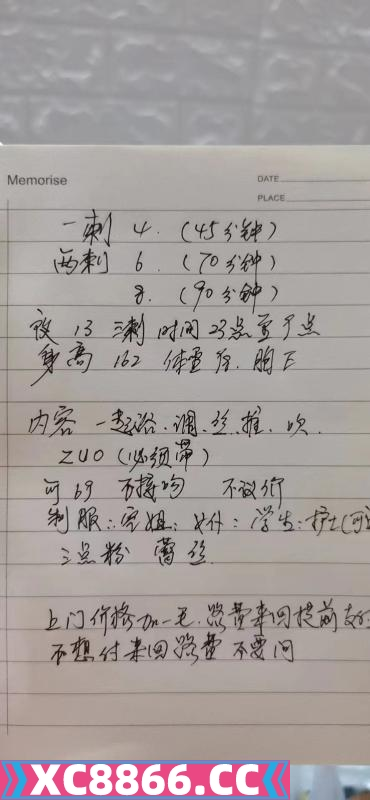 Memorise
DATE
PLACE
一刺 4. (45分钟)
两刺 6. (70分钟)
8. (90分钟)
夜 13 三刺 时间 23点至7点
身高 162 体重 胸E
内容 一起浴.调.丝.推.吹.
ZUO(必须带)
可69 不接吻 不议价
制服:空姐:女仆:学生:护士(可
三点粉 蕾丝
上门价格加一毛.路费来回提前支付
不想付来回路费 不要问
XC8866.CC